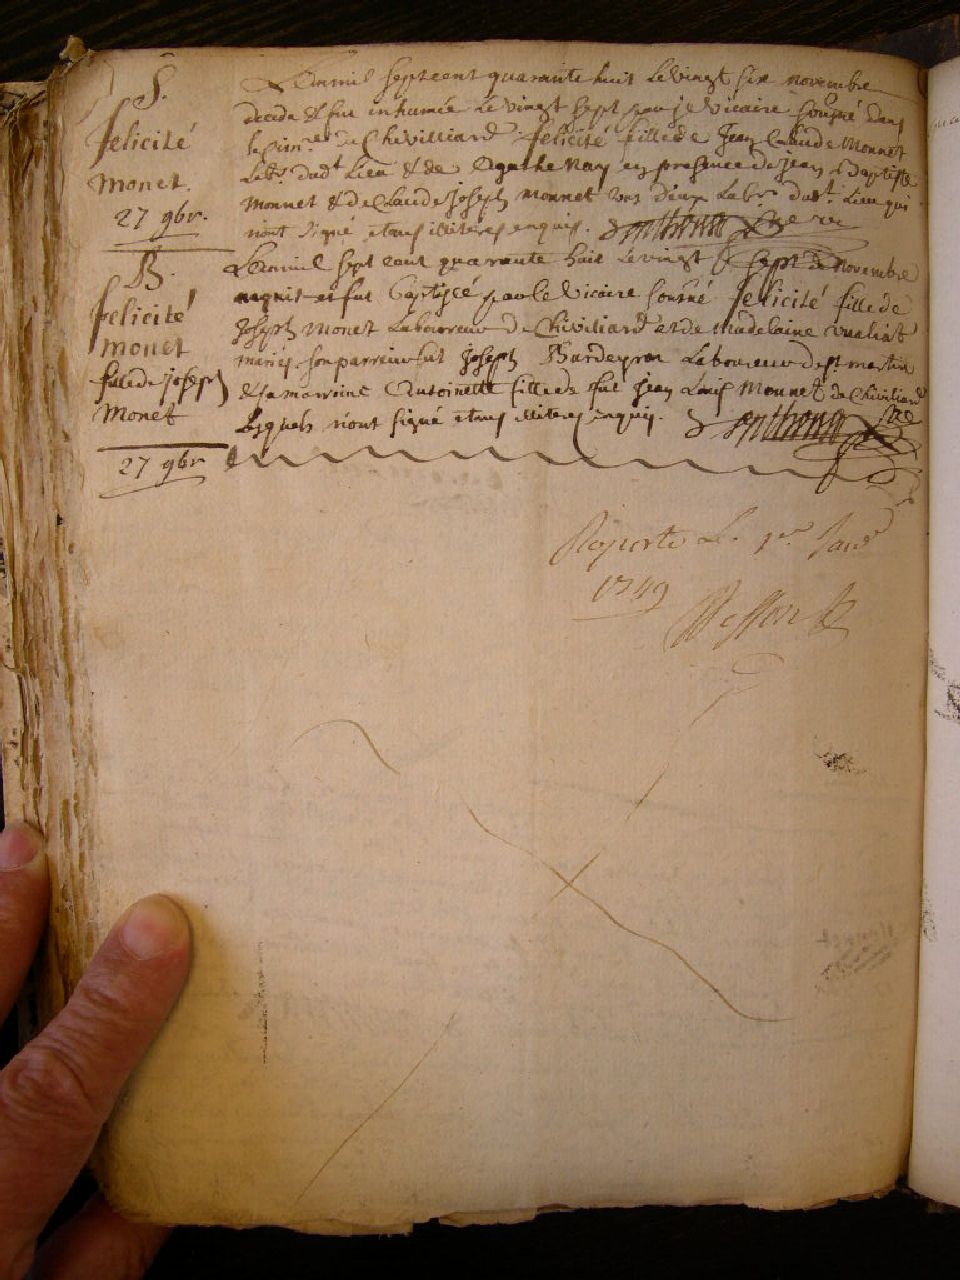 S.
felicité
Monet.
27 9br.
L'an mil sept cent quarante huit le vingt six novembre
decede & fut inhumée le vingt sept par je vicaire sousné dans
le cim.re de Chivilliard felicité fille de Jean Claude Monnet
Lab.r dud.t Lieu & de Agathe Nay en presence de Jean Baptiste
Monnet & de Claude Joseph Monnet tous deux Lab.rs dud.t Lieu qui
n'ont signé etans illiteres enquis.
B.
felicité
Monet
fille de joseph
Monet
27 9br
L'an mil sept cent quarante huit le vingt sept de novembre
naquit et fut baptisée par le vicaire sousné felicité fille de
Joseph Monet Laboureur de Chivilliard et de Madelaine
mariés son parrein fut Joseph Laboureur de s.t martin
& sa marraine Antoinette fille de fut Jean Louis Monnet de Chivilliard
Lesquels n'ont signé etans illiteres enquis.
Raporté Le 1.er Janv.r
1749